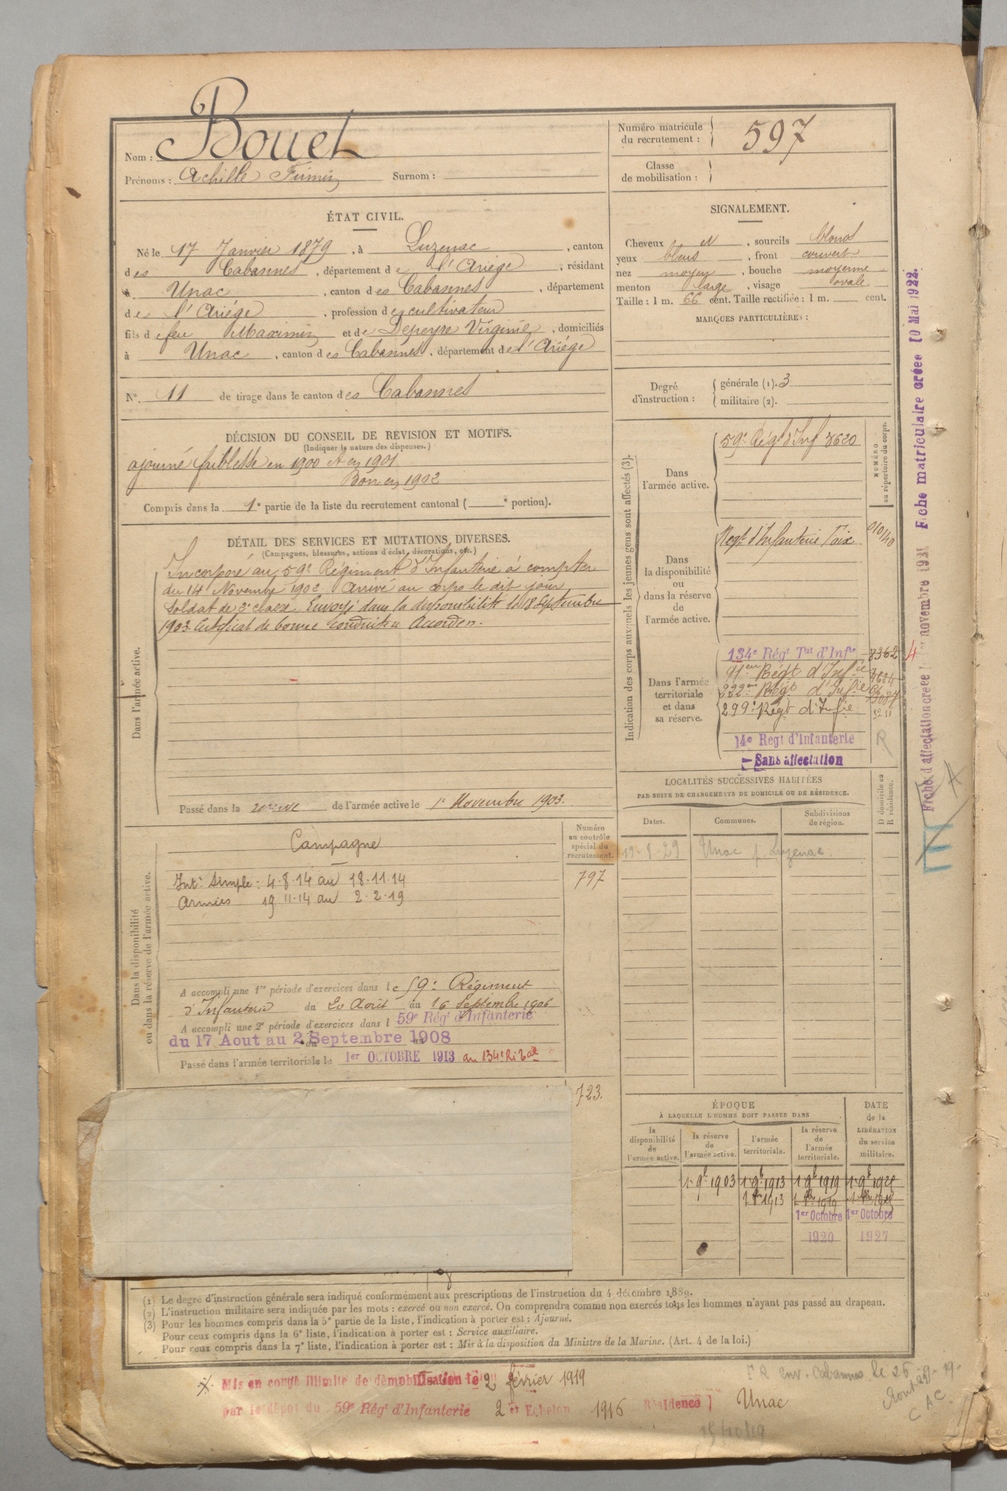 Nom : Bouet
Prénoms : Achille Firmin Surnom :
Numéro matricule du recrutement : 597
Classe de mobilisation :
ÉTAT CIVIL.
Né le 17 Janvier 1879, à Luzenac, canton
des Cabannes, département de l'Ariège, résidant
à Unac, canton des Cabannes, département
de l'Ariège, profession de cultivateur
fils de feu Maximin et de Depeyre Virginie, domiciliés
à Unac, canton des Cabannes, département de l'Ariège
N° 11 de tirage dans le canton des Cabannes
SIGNALEMENT.
Cheveux bl, sourcils blond
yeux bleus, front couvert
nez moyen, bouche moyenne
menton large, visage ovale
Taille : 1 m. 66 cent. Taille rectifiée : 1 m. cent.
MARQUES PARTICULIÈRES :
Degré d'instruction : générale (1). 3
militaire (2).
DÉCISION DU CONSEIL DE REVISION ET MOTIFS.
(Indiquer la nature des dispenses.)
ajourné faiblesse en 1900 et en 1901
Bon en 1902
Compris dans la 1e partie de la liste du recrutement cantonal ( e portion).
DÉTAIL DES SERVICES ET MUTATIONS DIVERSES.
(Campagnes, blessures, actions d'éclat, décorations, etc.)
Dans l'armée active.
Incorporé au 59e Régiment d'Infanterie à compter
du 14 Novembre 1902 Arrivé au corps le dit jour
soldat de 2e classe. Envoyé dans la disponibilité le 18 Septembre
1903 Certificat de bonne conduite Accordé.
Passé dans la réserve de l'armée active le 1er Novembre 1903.
Indication des corps auxquels les jeunes gens sont affectés (3).
NUMÉRO au répertoire du corps.
Dans l'armée active.
59e Régt d'Inf 3620
Dans la disponibilité ou dans la réserve de l'armée active.
Régt d'Infanterie Foix
Dans l'armée territoriale et dans sa réserve.
134e Rég t Tal d'Infie
Régt d'Infie
222e Régt d'Infie
299e Régt d'Infie
14e Régt d'Infanterie
Sans affectation
R
Fiche matriculaire créée 10 Mai 1922.
Fiche d'affectation créée novembre 1931
LOCALITÉS SUCCESSIVES HABITÉES
PAR SUITE DE CHANGEMENTS DE DOMICILE OU DE RÉSIDENCE.
D domicile ou R résidence.
Dates. Communes. Subdivisions de région.
Unac p. Luzenac
Numéro au contrôle spécial du recrutement.
797
Dans la disponibilité ou dans la réserve de l'armée active.
Campagne
Intr simple : 4-8-14 au 18-11-14
Armées 19-11-14 au 2-2-19
A accompli une 1re période d'exercices dans le 59e Régiment
d'Infanterie du 20 Août au 16 Septembre 1906
A accompli une 2e période d'exercices dans l 59e Rég t d'Infanterie
du 17 Aout au 2 Septembre 1908
Passé dans l'armée territoriale le 1er OCTOBRE 1913 au 134e
723.
ÉPOQUE
À LAQUELLE L'HOMME DOIT PASSER DANS
la disponibilité de l'armée active.
la réserve de l'armée active.
l'armée territoriale.
la réserve de l'armée territoriale.
DATE de la LIBÉRATION du service militaire.
1903 1913 1919
1913 1919
1er Octobre 1er Octobre
1920 1927
(1) Le degré d'instruction générale sera indiqué conformément aux prescriptions de l'instruction du 4 décembre 1889.
(2) L'instruction militaire sera indiquée par les mots : exercé ou non exercé. On comprendra comme non exercés tous les hommes n'ayant pas passé au drapeau.
(3) Pour les hommes compris dans la 5e partie de la liste, l'indication à porter est : Ajourné.
Pour ceux compris dans la 6e liste, l'indication à porter est : Service auxiliaire.
Pour ceux compris dans la 7e liste, l'indication à porter est : Mis à la disposition du Ministre de la Marine. (Art. 4 de la loi.)
Mis en congé illimité de démobilisation le 2 février 1919
par le dépot du 59e Rég t d'Infanterie 2 Echelon 1916 Résidence Unac
Cabannes le
15/10/19